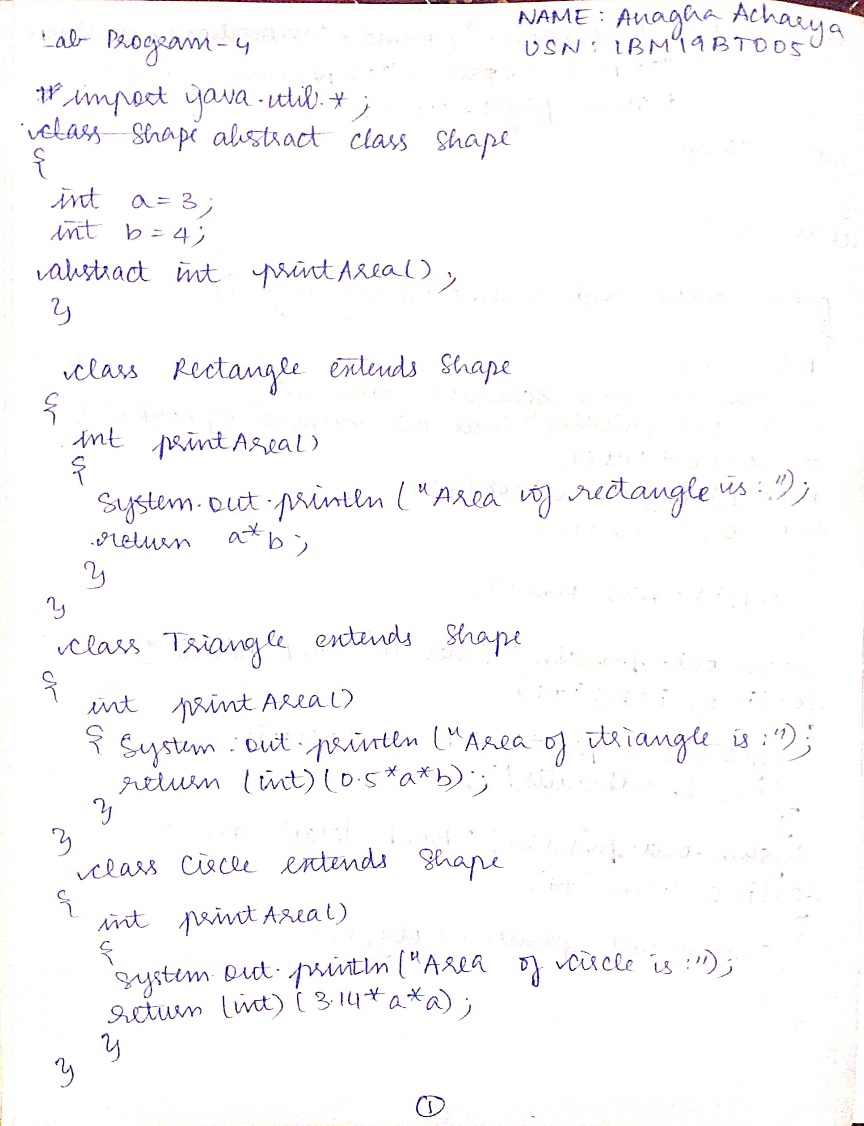 NAME : Anagha Acharya
Lab Program - 4
USN : 1BM19BT005
# import java.util.*;
class Shape abstract class Shape
{
int a = 3;
int b = 4;
abstract int printArea();
}
class Rectangle extends Shape
{
int printArea()
{
System.out.println ("Area of rectangle is : ");
return a*b;
}
}
class Triangle extends Shape
{
int printArea()
{ System.out.println ("Area of triangle is : ");
return (int) (0.5*a*b);
}
}
class Circle extends Shape
{
int printArea()
{
System.out.println ("Area of circle is : ");
return (int) (3.14*a*a);
}
}
1